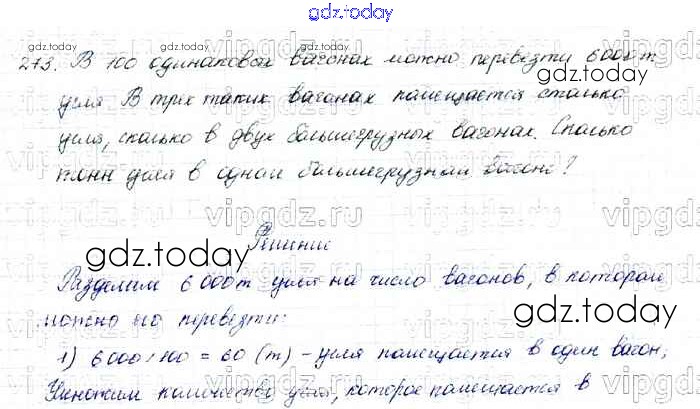 gdz.today
273. В 100 одинаковых вагонах можно перевезти 6000 т
угля В трех таких вагонах помещается столько
угля, сколько в двух большегрузных вагонах. Сколько
тонн угля в одном большегрузном вагоне?
Решение
Разделим 6 000 т угля на число вагонов, в котором
можно его перевезти:
1) 6000 : 100 = 60 (т) - угля помещается в один вагон;
Умножим количество угля, которое помещается в
gdz.today
gdz.today
gdz.today
gdz.today
gdz.today
gdz.today
vipgdz.ru
vipgdz.ru
vipgdz.ru
vipgdz.ru